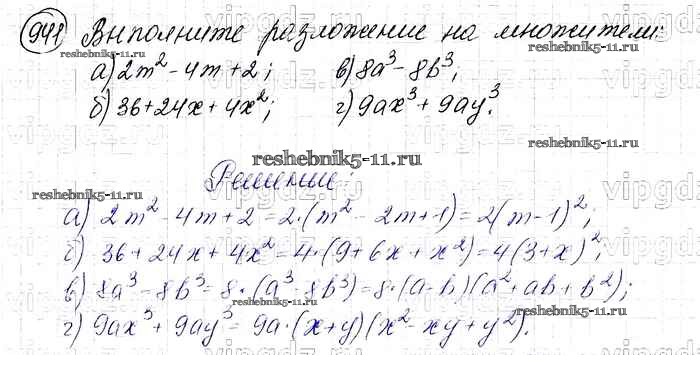 941 Выполните разложение на множители:
а) 2m² - 4m + 2; в) 8a³ - 8b³;
б) 36 + 24x + 4x²; г) 9ax³ + 9ay³.
reshebnik5-11.ru
Решение:
reshebnik5-11.ru
а) 2m² - 4m + 2 = 2·(m² - 2m + 1) = 2(m - 1)²;
б) 36 + 24x + 4x² = 4·(9 + 6x + x²) = 4(3 + x)²;
в) 8a³ - 8b³ = 8·(a³ - 8b³) = 8·(a - b)(a² + ab + b²);
г) 9ax³ + 9ay³ = 9a·(x + y)(x² - xy + y²).
reshebnik5-11.ru
reshebnik5-11.ru
vipgdz.ru